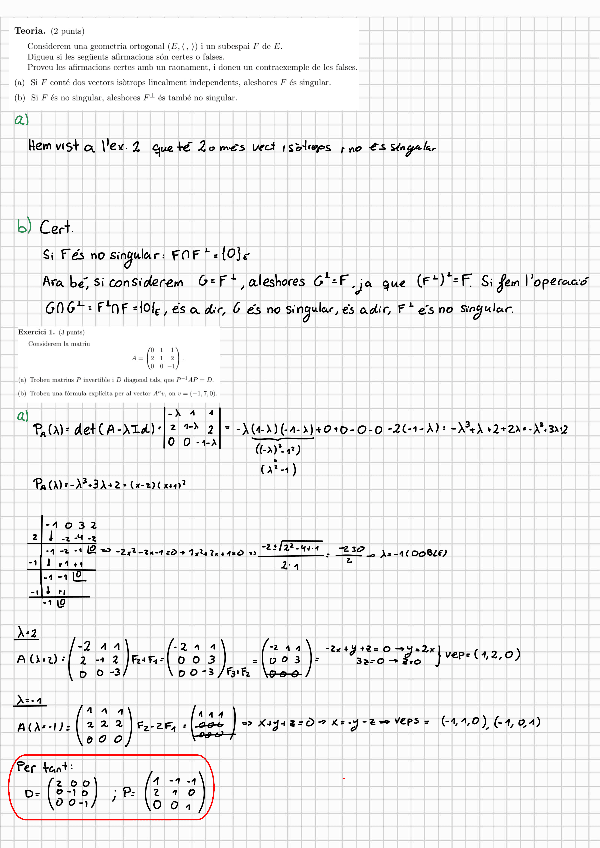 Teoria. (2 punts)
Considerem una geometria ortogonal (E, ⟨ , ⟩) i un subespai F de E.
Digueu si les següents afirmacions són certes o falses.
Proveu les afirmacions certes amb un raonament, i doneu un contraexemple de les falses.
(a) Si F conté dos vectors isòtrops linealment independents, aleshores F és singular.
(b) Si F és no singular, aleshores F⊥ és també no singular.
a)
Hem vist a l'ex. 2 que té 2 o més vect isòtrops i no és singular
b) Cert.
Si F és no singular: F∩F⊥ = {0}E
Ara bé, si considerem G=F⊥, aleshores G⊥=F, ja que (F⊥)⊥=F. Si fem l'operació
G∩G⊥ = F⊥∩F = {0}E, és a dir, G és no singular, és a dir, F⊥ és no singular.
Exercici 1. (3 punts)
Considerem la matriu
A = (0 1 1
2 1 2
0 0 -1)
(a) Trobeu matrius P invertible i D diagonal tals que P⁻¹AP = D.
(b) Trobeu una fórmula explícita per al vector Aⁿv, on v = (-1, 7, 0).
a)
P_A(λ) = det(A-λId) = |-λ 1 1
2 1-λ 2
0 0 -1-λ| = -λ(1-λ)(-1-λ)+0+0-0-0-2(-1-λ) = -λ³+λ+2+2λ = -λ³+3λ+2
((-λ)²-1²)
(λ²-1)
P_A(λ) = -λ³+3λ+2 = (x-2)(x+1)²
-1 0 3 2
2 ↓ -2 -4 -2
-1 -2 -1 |0 ⇒ -2x²-2x-1=0 → 1x²+2x+1=0 ⇒ (-2±√(2²-4·1·1))/(2·1) = (-2±0)/2 → λ=-1 (DOBLE)
-1 ↓ +1 +1
-1 -1 |0
-1 ↓ +1
-1 |0
λ=2
A(λ=2) = (-2 1 1
2 -1 2
0 0 -3) F2+F1 = (-2 1 1
0 0 3
0 0 -3) F3+F2 = (-2 1 1
0 0 3
0 0 0) = -2x+y+z=0 → y=2x
3z=0 → z=0 } vep=(1,2,0)
λ=-1
A(λ=-1) = (1 1 1
2 2 2
0 0 0) F2-2F1 = (1 1 1
0 0 0
0 0 0) ⇒ x+y+z=0 → x=-y-z → veps = (-1,1,0), (-1,0,1)
Per tant:
D = (2 0 0
0 -1 0
0 0 -1) ; P = (1 -1 -1
2 1 0
0 0 1)